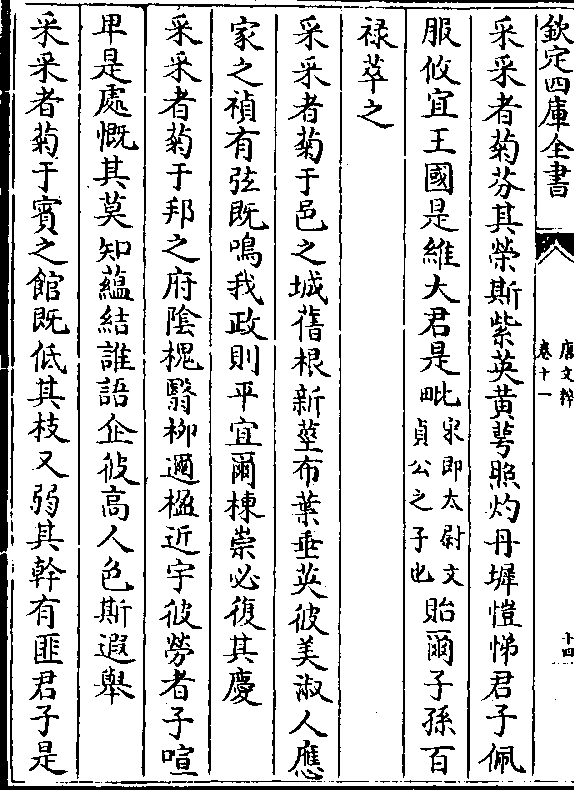 欽定四庫全書
唐文粹
卷十一
十四
采采者菊芬其榮斯紫英黄萼照灼丹墀愷悌君子佩
服攸宜王國是維大君是毗宋即太尉文
貞公之子也貽爾子孫百
禄萃之
采采者菊于邑之城舊根新莖布葉垂英彼美淑人應
家之禎有弦既鳴我政則平宜爾棟崇必復其慶
采采者菊于邦之府陰槐翳栁邇楹近宇彼勞者子喧
卑是處慨其莫知藴結誰語企彼高人色斯遐舉
采采者菊于賓之館既低其枝又弱其幹有匪君子是